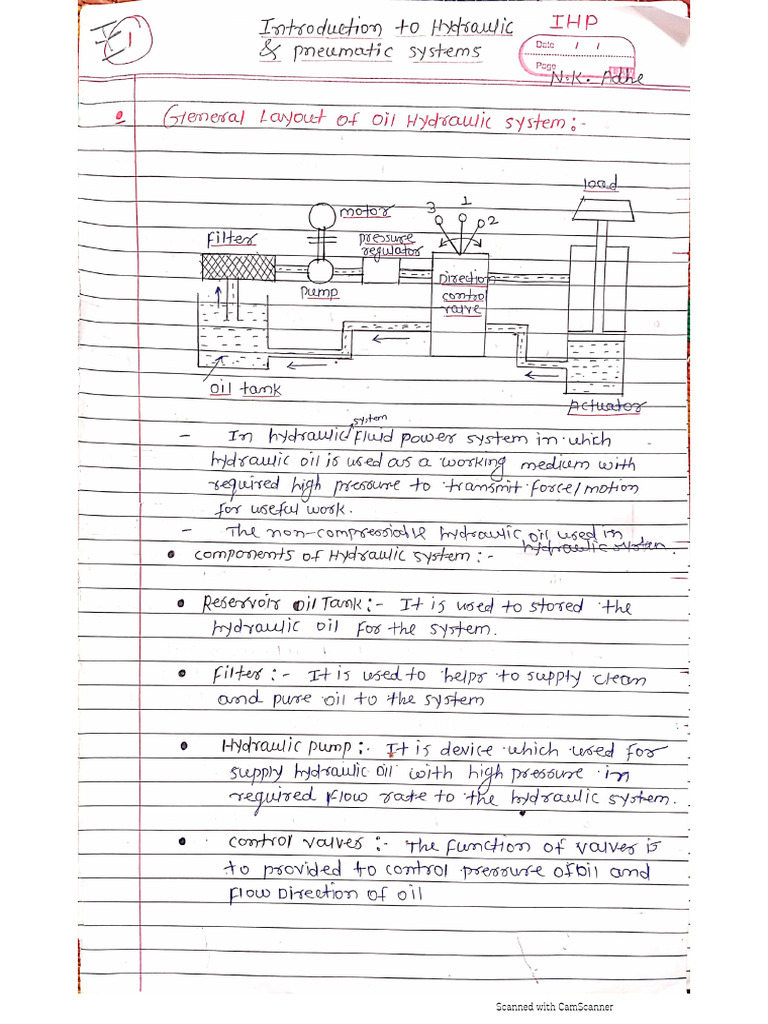 Introduction to Hydraulic
& pneumatic systems
IHP
Date / /
Page
N.K. Adhe
1
General Layout of oil Hydraulic system:-
load
motor
3 1 2
Filter
pressure
regulator
pump
Direction
contro
valve
oil tank
Actuator
system
- In hydraulic fluid power system in which
hydraulic oil is used as a working medium with
required high pressure to transmit force/motion
for useful work.
- The non-compressiable hydraulic oil used in
hydraulic system.
• components of Hydraulic system :-
• Reservoir oil Tank :- It is used to stored the
hydraulic oil for the system.
• Filter :- It is used to helps to supply clean
and pure oil to the system
• Hydraulic pump :- It is device which used for
supply hydraulic oil with high pressure in
required flow rate to the hydraulic system.
• control valves :- The function of valves is
to provided to control pressure of oil and
flow Direction of oil
Scanned with CamScanner